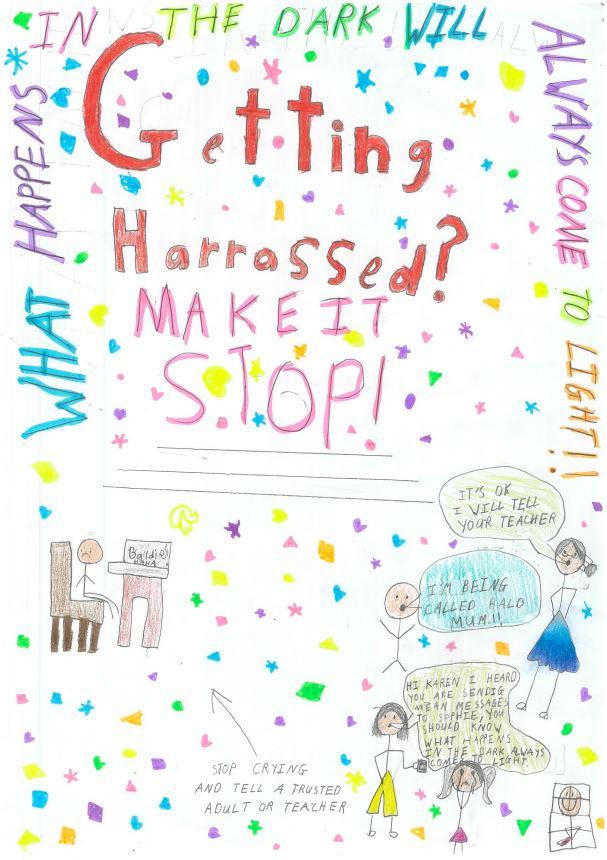 WHAT HAPPENS
IN THE DARK WILL
ALWAYS COME TO LIGHT!!
Getting
Harrassed?
MAKE IT
STOP!
IT'S OK
I WILL TELL
YOUR TEACHER
Baldie!
HAHA
I'M BEING
CALLED BALD
MUM!!
HI KAREN I HEARD
YOU ARE SENDIG
MEAN MESSAGES
TO SOPHIE, YOU
SHOULD KNOW
WHAT HAPPENS
IN THE DARK ALWAYS
COME TO LIGHT
STOP CRYING
AND TELL A TRUSTED
ADULT OR TEACHER